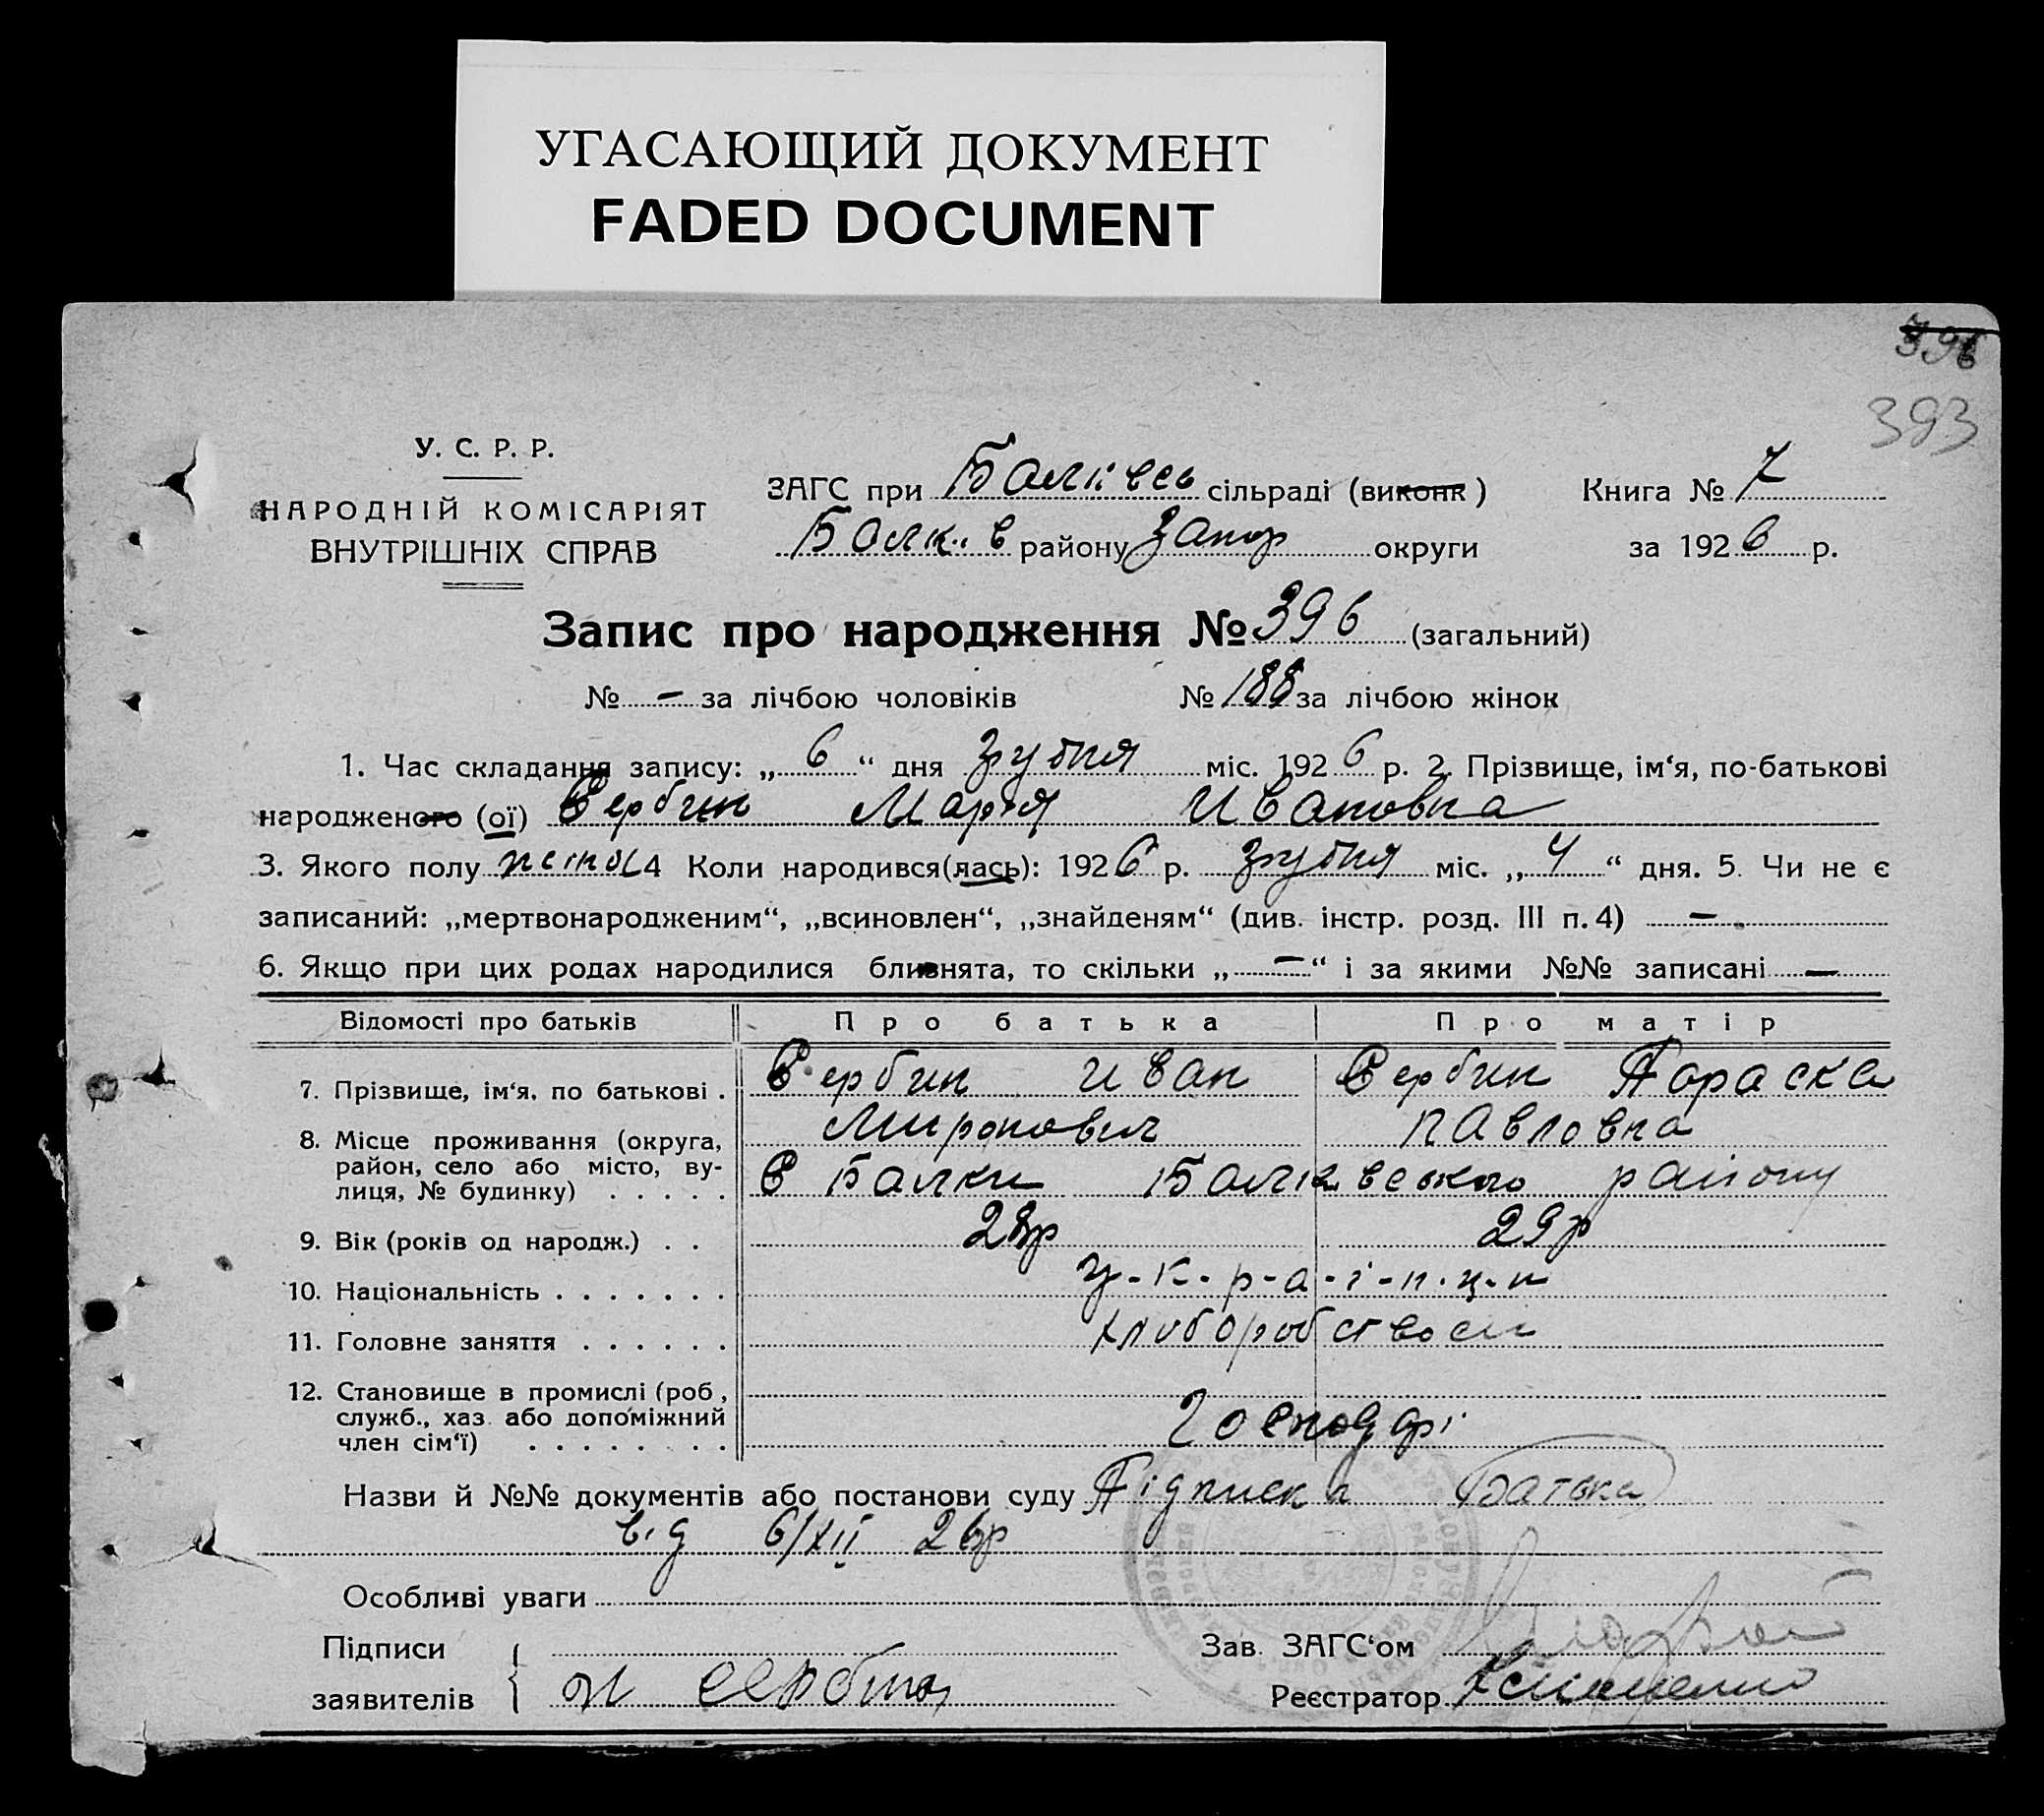 УГАСАЮЩИЙ ДОКУМЕНТ
FADED DOCUMENT
396
393
У. С. Р. Р.
НАРОДНІЙ КОМІСАРІЯТ
ВНУТРІШНІХ СПРАВ
ЗАГС при Балківсь сільраді (виконк) Книга № 7
Балків району Запор округи за 1926 р.
Запис про народження № 396 (загальний)
№ – за лічбою чоловіків № 188 за лічбою жінок
1. Час складання запису: „6“ дня Грудня міс. 1926 р. 2. Прізвище, ім‘я, по-батькові
народженого (ої) Сербин Марія Ивановна
3. Якого полу жіноч 4 Коли народився(лась): 1926 р. грудня міс. „4“ дня. 5. Чи не є
записаний: „мертвонародженим“, „всиновлен“, „знайденям“ (див. інстр. розд. III п. 4) –
6. Якщо при цих родах народилися близнята, то скільки „–“ і за якими №№ записані –
Відомості про батьків Про батька Про матір
7. Прізвище, ім‘я, по батькові . Сербин Иван Сербин Параска
Миронович Павловна
8. Місце проживання (округа,
район, село або місто, ву-
лиця, № будинку) . . . . . С Балки Балківського району
9. Вік (років од народж.) . . 28р 29р
10. Національність . . . . . . . У-к-р-а-ї-н-ц-и
11. Головне заняття . . . . . . хліборобством
12. Становище в промислі (роб,
служб., хаз. або допоміжний
член сім‘ї) . . . . . . . . Господарі
Назви й №№ документів або постанови суду Підписка Батька
від 6/XII 26р
Особливі уваги
Підписи
заявителів Сербин
Зав. ЗАГС‘ом
Реєстратор